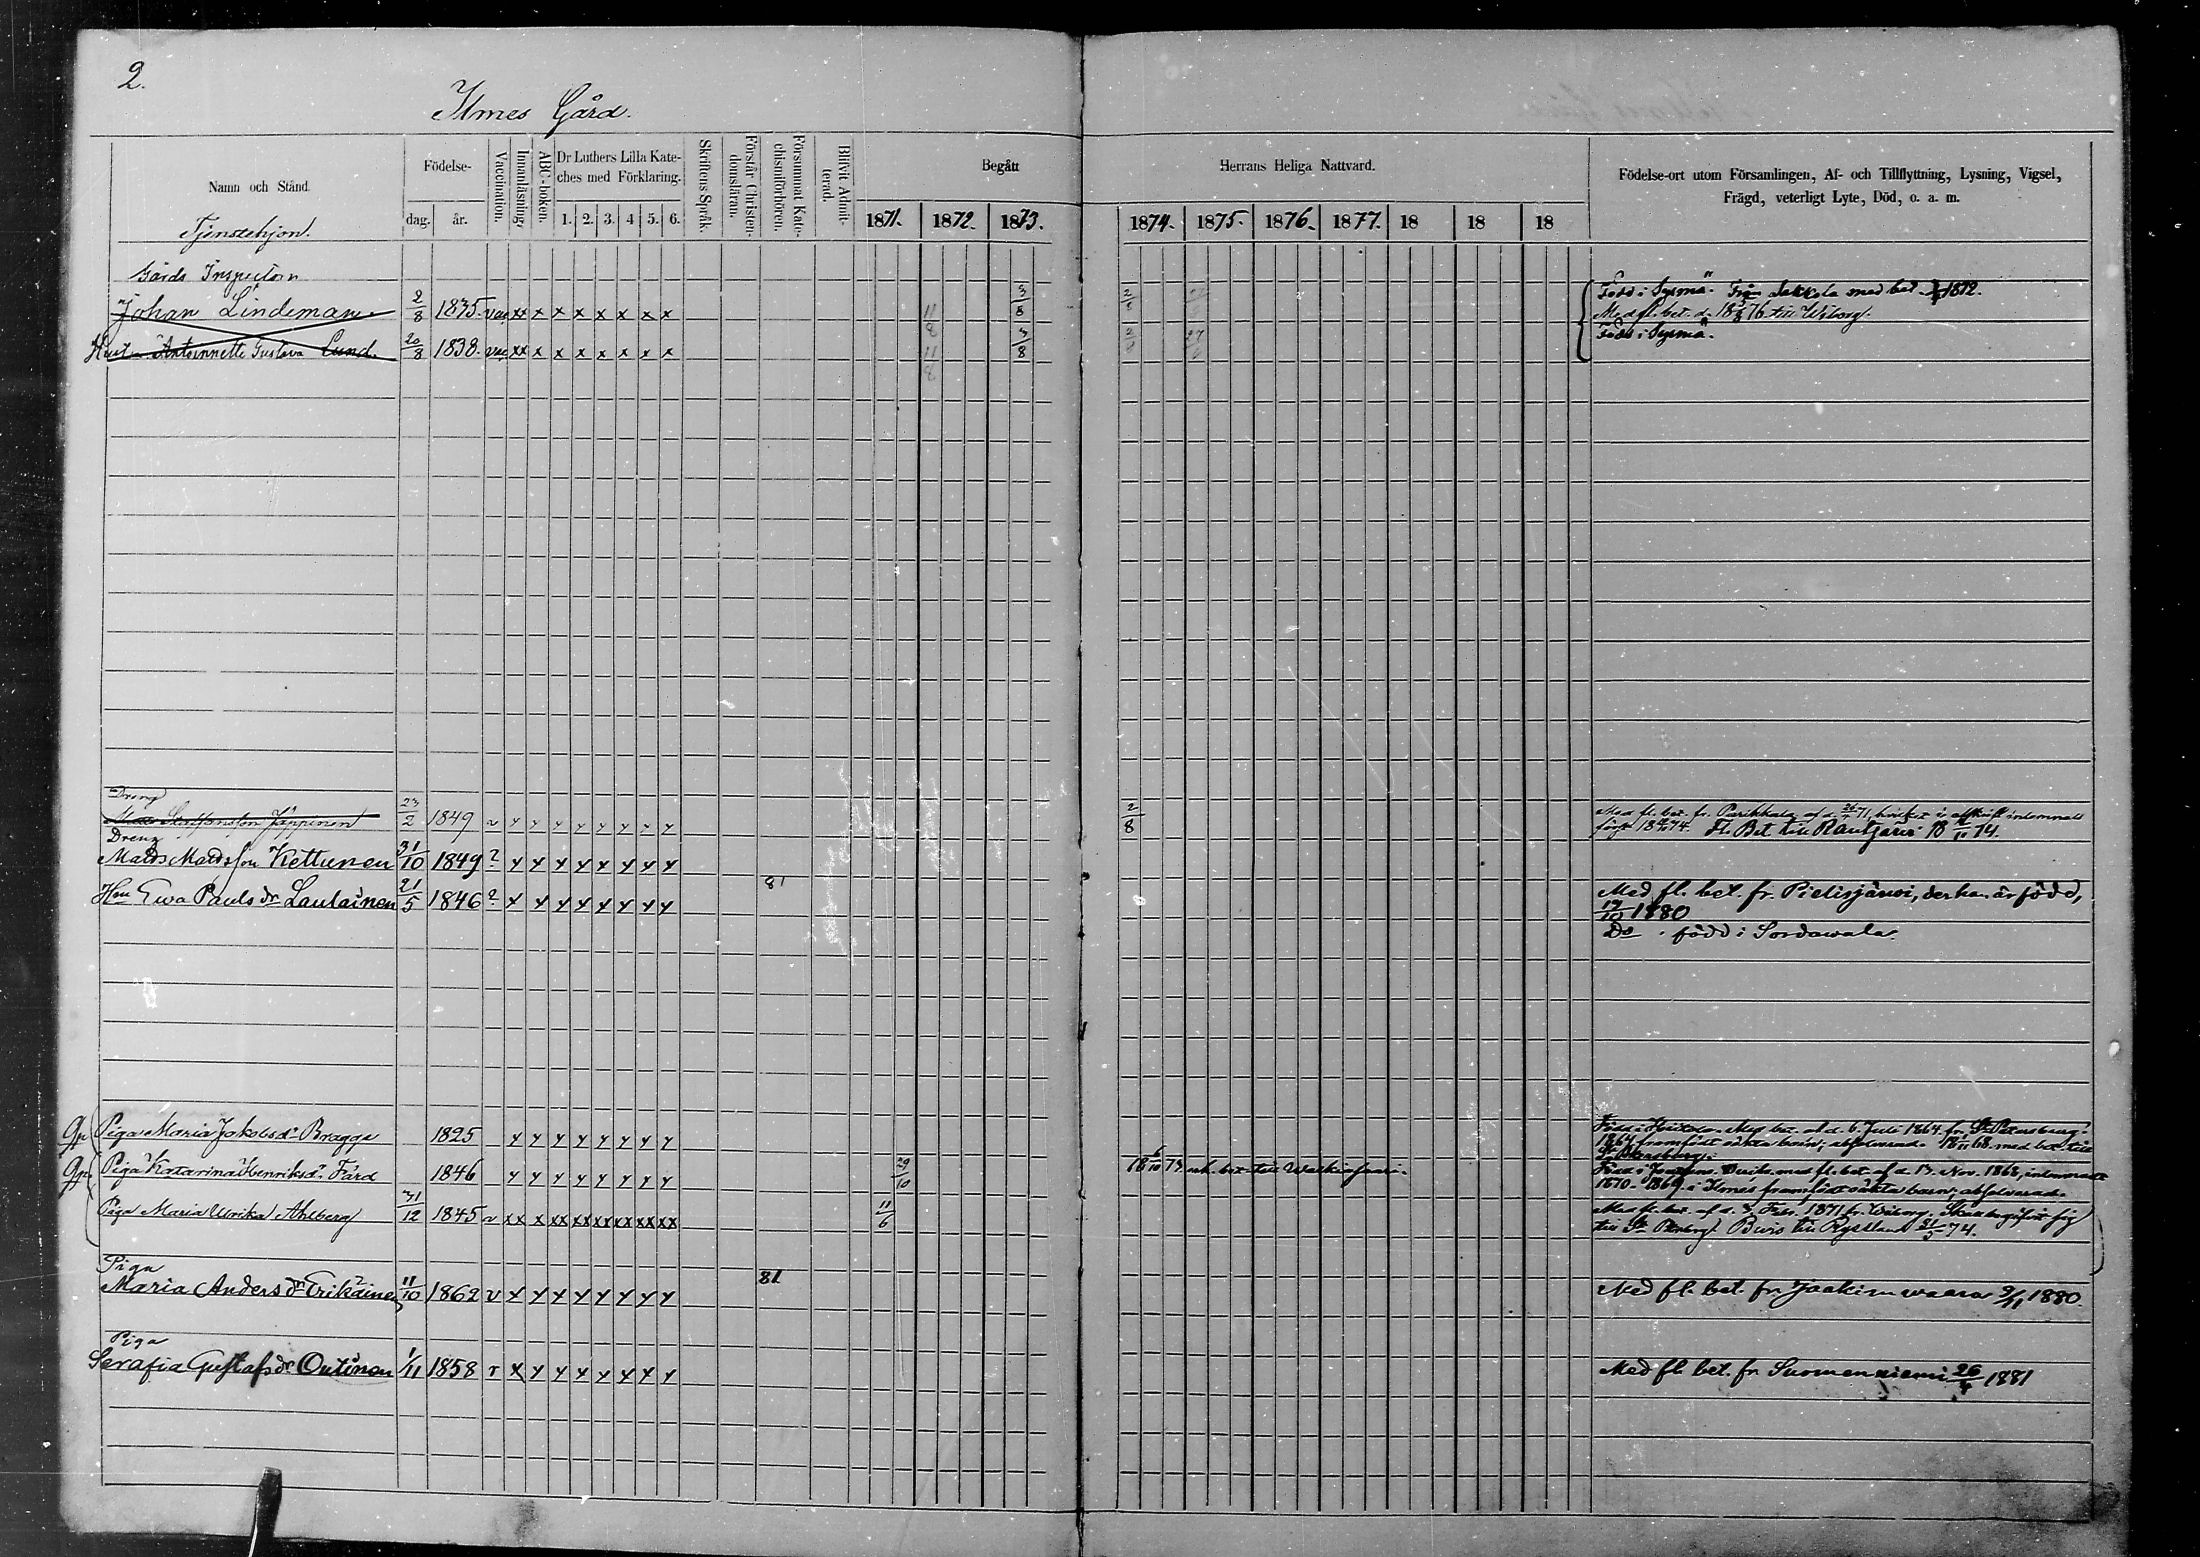 2.
Ilmes Gård.
Namn och Stånd.
Födelse-
dag. år.
Vaccination.
Innanläsning.
ABC-boken.
Dr Luthers Lilla Kate-
ches med Förklaring.
1. 2. 3. 4 5. 6.
Skriftens Språk.
Förstår Christen-
domsläran.
Försummat Kate-
chismiförhören.
Blifvit Admit-
terad.
Begått
Herrans Heliga Nattvard.
1871. 1872. 1873.
1874. 1875. 1876. 1877. 18 18 18
Födelse-ort utom Församlingen, Af- och Tillflyttning, Lysning, Vigsel,
Frägd, veterligt Lyte, Död, o. a. m.
Tjenstehjon.
Gårds Inspectorn
Johan Lindeman. 2/8 1835. vac. xx x x x x x x x 11/8 3/8 2/8 Född i Sysmä. Från Sakkola med bet. 1872.
Med fl. bet. d. 18 76 till Wiborg.
Hust. Antoinnette Gustava Lund. 20/8 1838. vac. xx x x x x x x x 11/8 3/8 2/8 27 Född i Sysmä.
Dreng
Jäppinen 23/2 1849 v y y y y y y y y 2/8 Med fl. bet. fr. Parikkala af d. 71, hvilket i afskrift inlemnats
först 18 74. Fl. Bet. till Rautjärvi 18 11 74.
Dreng
Matts Mattsson Kettunen 31/10 1849 ? y y y y y y y y
Hon Ewa Pauls dr Laulainen 21/5 1846 ? x y y y y y y y 81 Med fl. bet. fr. Pielisjärwi, der han är född,
17/10 1880
Do född i Sordawala.
Piga Maria Jakobsdr Bragge 1825 y y y y y y y y Med bet. af d. 6 Juli 1864 fr. St Petersburg.
1864 framfödt oäkta barn; absolverad. 18 11 68 med bet. till
St Petersburg.
Piga Katarina Henriksdr Färd 1846 y y y y y y y y 29/10 18 6/10 73 enk. bet. till Walkiasaari. Född i med fl. bet. af d. 13 Nov. 1868, inlemnadt
1870. 1869 i Ilmes framfödt oäkta barn; absolverad.
Piga Maria Ulrika Ahlberg 31/12 1845 v xx x xx xx xx xx xx xx 11/6 Med fl. bet. af d. 3 Febr. 1871 fr. Wiborg.
till St Petersbg. Bevis till Ryssland 21/5 74.
Piga
Maria Anders dr Erikäinen 11/10 1862 v x y y y y y y y 81 Med fl. bet. fr. Jaakimwaara 9/11 1880.
Piga
Serafia Gustafs dr Outinen 1/11 1858 v x y y y y y y y Med fl. bet. fr. Suomenniemi 26/4 1881